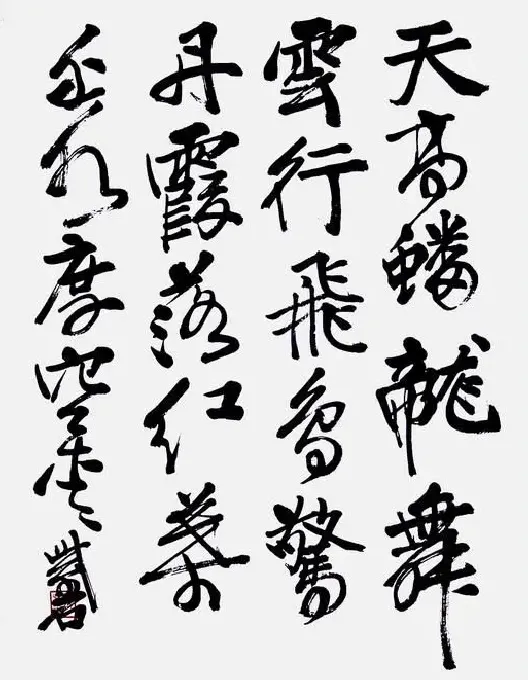 天高蟠龍舞
雲行飛鳥驚
丹霞落紅葉
水度